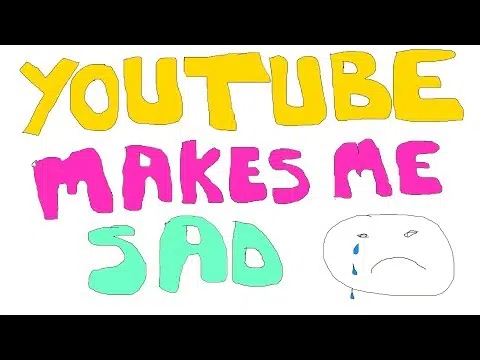 YOUTUBE
MAKES ME
SAD